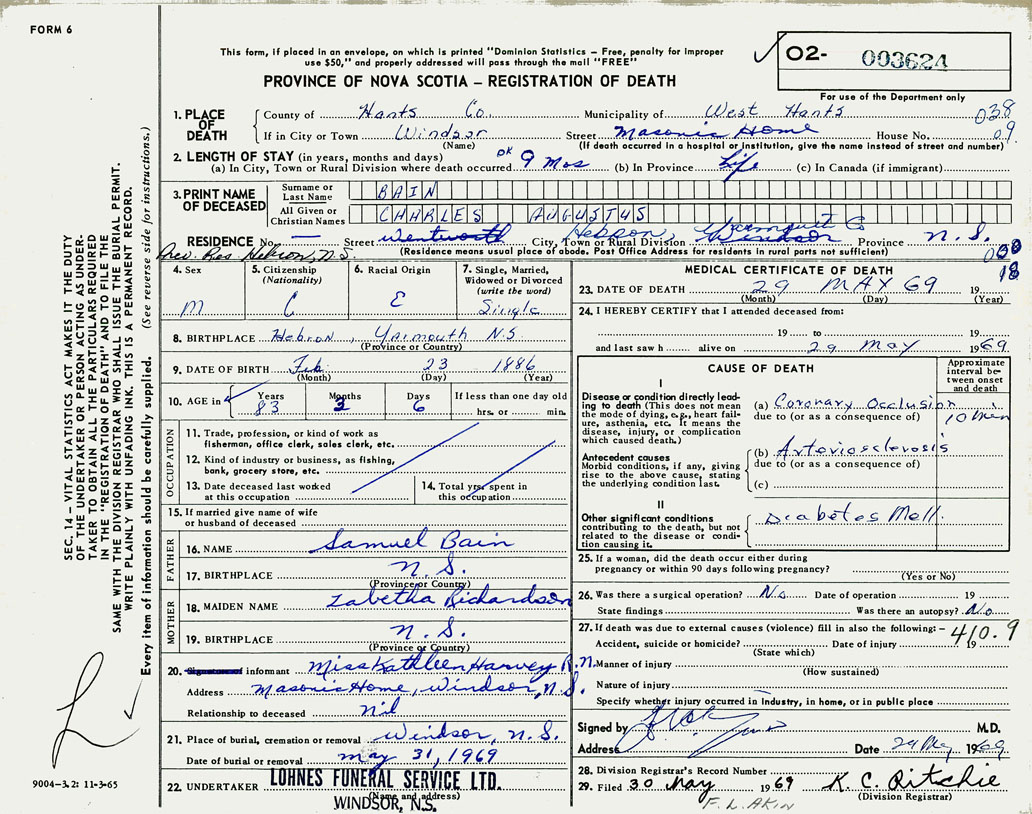 FORM 6
This form, if placed in an envelope, on which is printed "Dominion Statistics – Free, penalty for improper
use $50," and properly addressed will pass through the mail "FREE"
PROVINCE OF NOVA SCOTIA – REGISTRATION OF DEATH
O2- 003624
For use of the Department only
1. PLACE OF DEATH County of Hants Co. Municipality of West Hants 038
If in City or Town Windsor Street Masonic Home House No. 09
(Name) (If death occurred in a hospital or institution, give the name instead of street and number)
2. LENGTH OF STAY (in years, months and days)
(a) In City, Town or Rural Division where death occurred OK 9 Mos (b) In Province Life (c) In Canada (if immigrant)
3. PRINT NAME OF DECEASED Surname or Last Name BAIN
All Given or Christian Names CHARLES AUGUSTUS
RESIDENCE No. — Street Wentworth City, Town or Rural Division Hebron, Yarmouth Co Windsor Province N.S.
Prev. Res. Hebron, N.S. (Residence means usual place of abode. Post Office Address for residents in rural parts not sufficient)
18
4. Sex M
5. Citizenship (Nationality) C
6. Racial Origin E
7. Single, Married, Widowed or Divorced (write the word) Single
8. BIRTHPLACE Hebron, Yarmouth N.S
(Province or Country)
9. DATE OF BIRTH Feb 23 1886
(Month) (Day) (Year)
10. AGE in Years 83 Months 3 Days 6 If less than one day old hrs. or min.
OCCUPATION
11. Trade, profession, or kind of work as
fisherman, office clerk, sales clerk, etc.
12. Kind of industry or business, as fishing,
bank, grocery store, etc.
13. Date deceased last worked at this occupation
14. Total yrs. spent in this occupation
15. If married give name of wife
or husband of deceased
FATHER
16. NAME Samuel Bain
17. BIRTHPLACE N.S.
(Province or Country)
MOTHER
18. MAIDEN NAME Zabetha Richardson
19. BIRTHPLACE N.S.
(Province or Country)
20. informant Miss Kathleen Harvey R.N.
Address Masonic Home, Windsor, N.S.
Relationship to deceased nil
21. Place of burial, cremation or removal Windsor, N.S.
Date of burial or removal May 31, 1969
22. UNDERTAKER LOHNES FUNERAL SERVICE LTD.
(Name and address)
WINDSOR, N.S.
MEDICAL CERTIFICATE OF DEATH
23. DATE OF DEATH 29 MAY 69 19
(Month) (Day) (Year)
24. I HEREBY CERTIFY that I attended deceased from:
19 to 19
and last saw h alive on 29 May 1969
CAUSE OF DEATH
Approximate interval between onset and death
I
Disease or condition directly leading to death (This does not mean the mode of dying, e.g., heart failure, asthenia, etc. It means the disease, injury, or complication which caused death.)
(a) Coronary Occlusion 10 Min
due to (or as a consequence of)
Antecedent causes
Morbid conditions, if any, giving rise to the above cause, stating the underlying condition last.
(b) Arteriosclerosis
due to (or as a consequence of)
(c)
II
Other significant conditions
contributing to the death, but not related to the disease or condition causing it.
Diabetes Mell.
25. If a woman, did the death occur either during
pregnancy or within 90 days following pregnancy?
(Yes or No)
26. Was there a surgical operation? No Date of operation 19
State findings Was there an autopsy? No
27. If death was due to external causes (violence) fill in also the following: – 410.9
Accident, suicide or homicide? Date of injury 19
(State which)
Manner of injury
(How sustained)
Nature of injury
Specify whether injury occurred in Industry, in home, or in public place
Signed by M.D.
Address Date 29 May 1969
28. Division Registrar's Record Number
29. Filed 30 May 1969 K. C. Ritchie
(Division Registrar)
F. L. AKIN
SEC. 14 – VITAL STATISTICS ACT MAKES IT THE DUTY
OF THE UNDERTAKER OR PERSON ACTING AS UNDER-
TAKER TO OBTAIN ALL THE PARTICULARS REQUIRED
IN THE "REGISTRATION OF DEATH" AND TO FILE THE
SAME WITH THE DIVISION REGISTRAR WHO SHALL ISSUE THE BURIAL PERMIT.
WRITE PLAINLY WITH UNFADING INK. THIS IS A PERMANENT RECORD.
Every item of information should be carefully supplied. (See reverse side for instructions.)
9004–3.2: 11-3-65